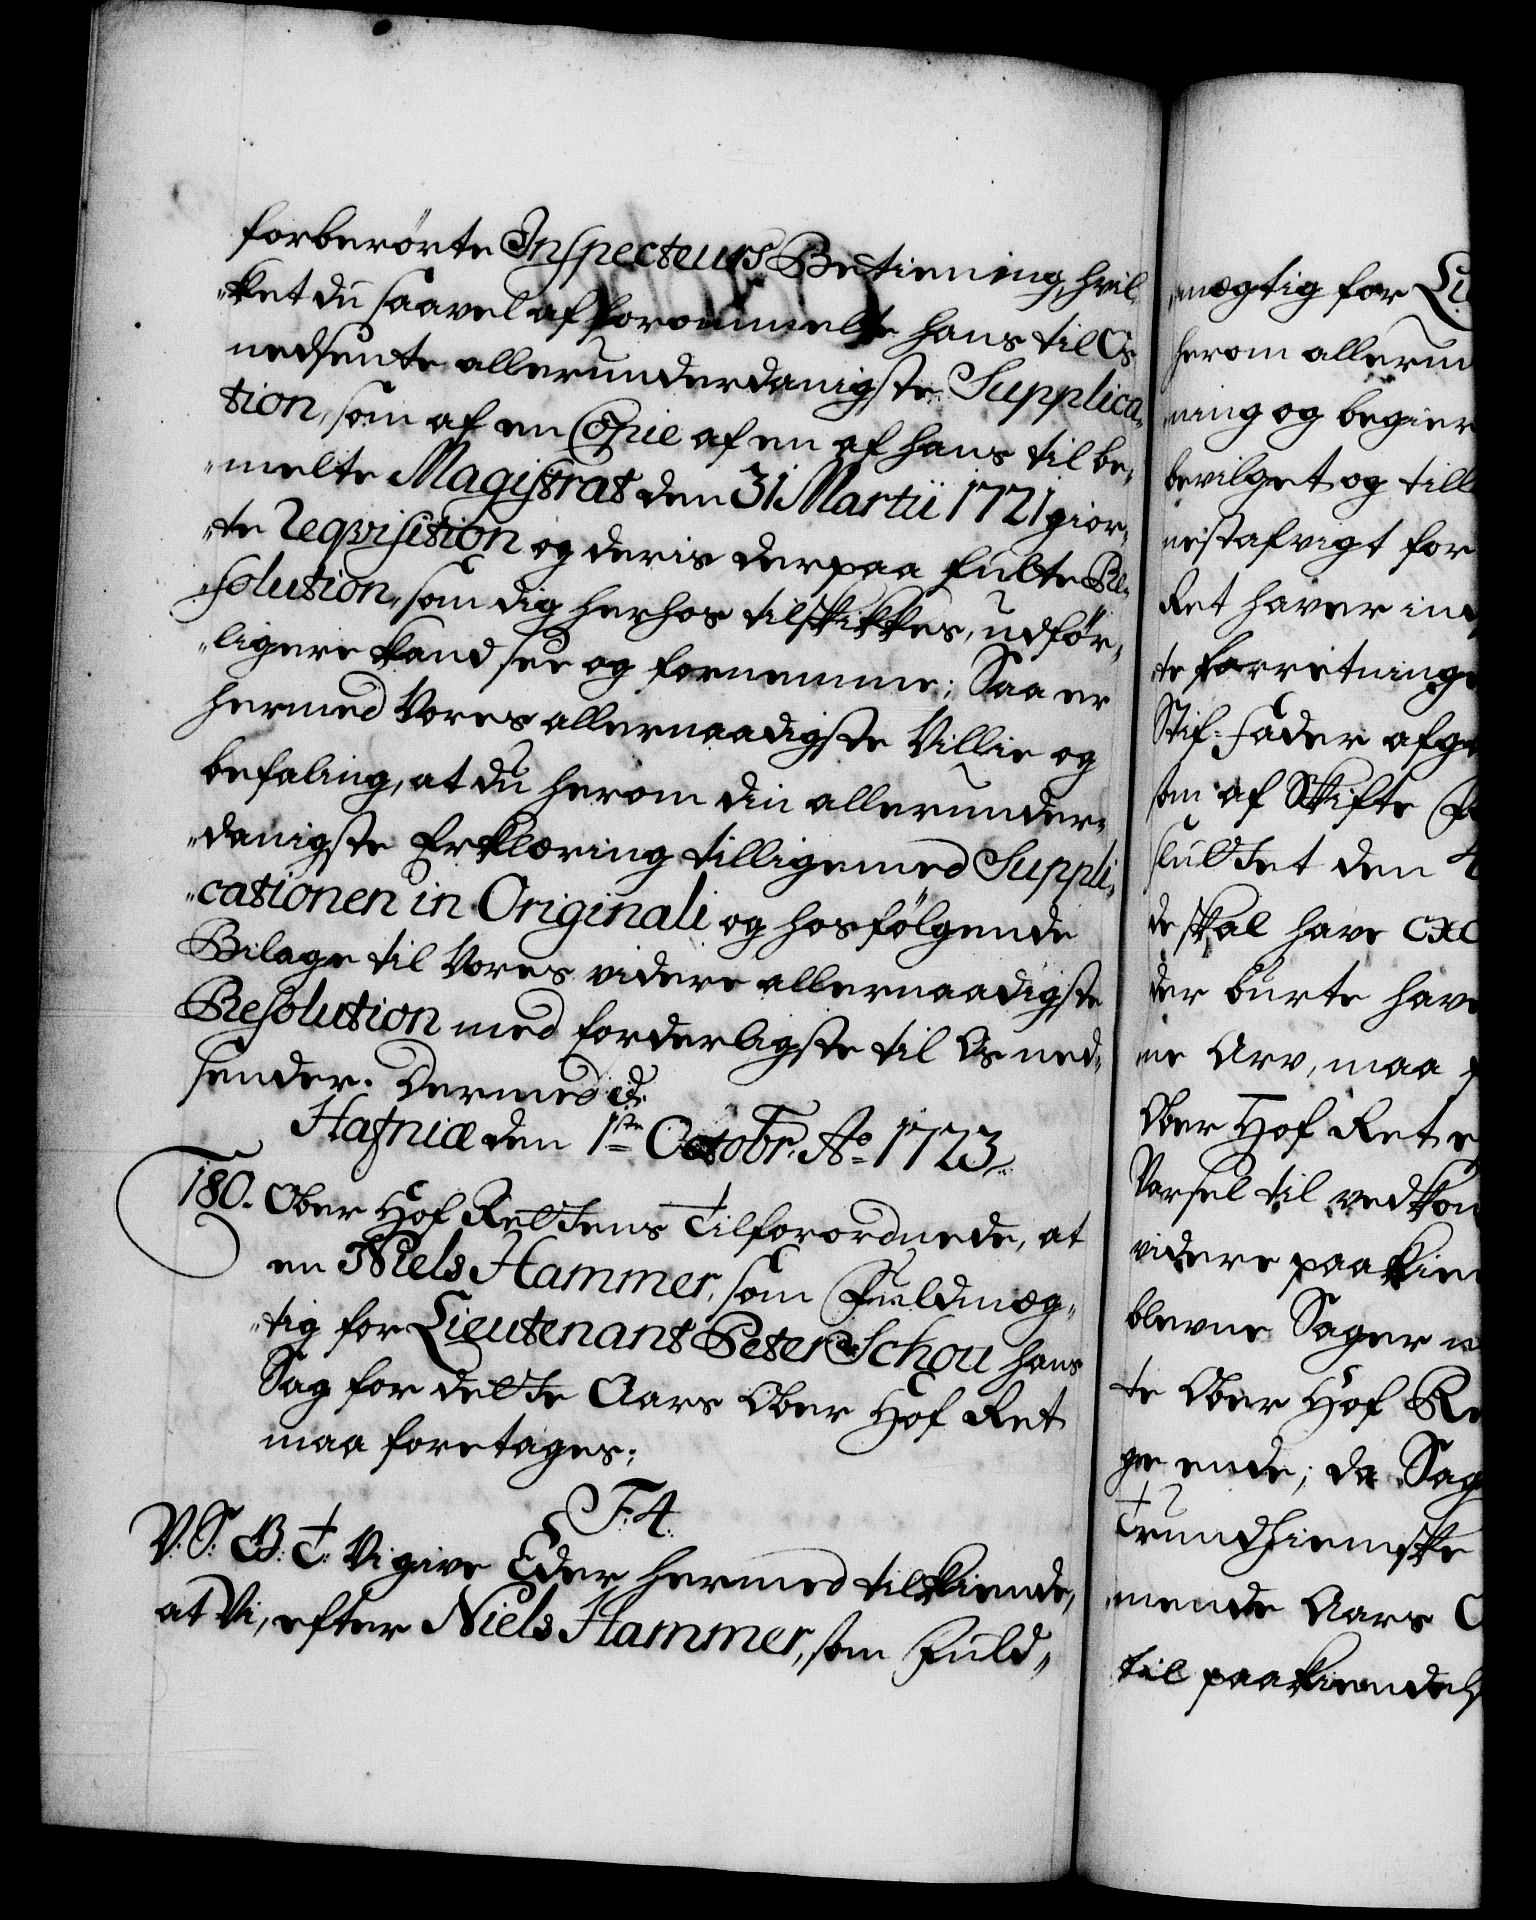 forberørte Inspecteurs Betiening, hvil„
„ket du saavel af forommelte hans til Os
nedsente allerunderdanigste Supplica„
tion, som af en Copie af en af hans til be„
„melte Magistrat den 31 Martii 1721 gior„
„te Reqvisition og deris derpaa fulte Re„
solution, som dig herhos tilskikkes, udför„
„ligere kand see og fornemme; Saa er
hermed Vores allernaadigste Villie og
befaling, at du herom din allerunder„
„danigste Erklæring tilligemed Suppli„
„cationen in Originali og hosfölgende
Bilage til Vores videre allernaadigste
Resolution med forderligste til Os ned„
sender. Dermed etc.
Hafniæ den 1ste Octobr. Ao 1723.
180. Ober Hof Rettens Tilforordnede, at
en Niels Hammer, som Fuldmæg„
„tig for Lieutenant Peter Schou hans
Sag for dette Aars Ober Hof Ret
maa foretages;
F. 4.
V. S. G. T. Vi give Eder hermed tilkiende,
at Vi, efter Niels Hammer, som Fuld„
„mægtig for Li
herom allerun
ning og begier
bevilget og till
nestafvigt for
Ret haver in
te forretninge
Stif-fader afg
som af Skifte
sluttet den 4
de skal have exc
der burte have
ne Arv, maa
Ober Hof Ret
Varsel til vedkom
videre paakien
blevne Sager
te Ober Hof Re
ge ende; da Sag
Trundhiemske
„mende Aars O
til paakiendels